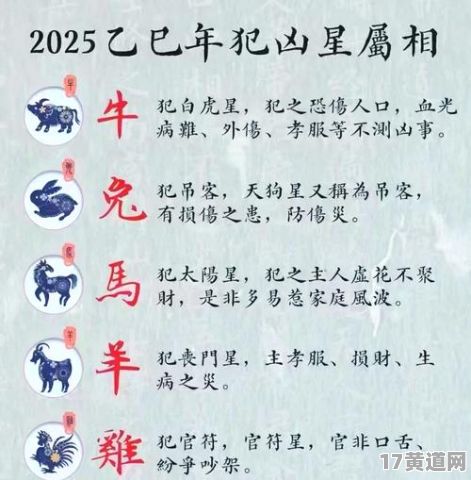 2025乙巳年犯凶星屬相
牛
犯白虎星，犯之恐傷人口，血光
病難、外傷、孝服等不測凶事。
兔
犯吊客，天狗星又稱為吊客，
有損傷之患，防傷災。
馬
犯太陽星，犯之主人虛花不聚
財，是非多易惹家庭風波。
羊
犯喪門星，主孝服、損財、生
病之災。
雞
犯官符，官符星，官非口舌、
紛爭吵架。
17黄道网